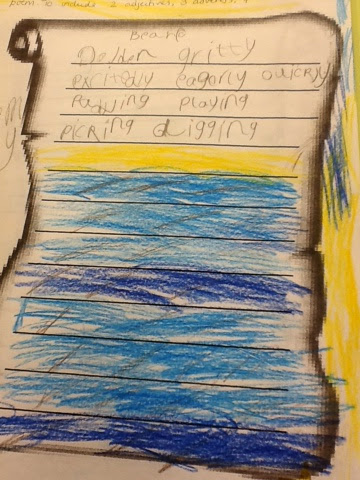 poem to include 2 adjectives, 3 adverbs, 4
Beach
Golden gritty
excitedly eagerly quickly
playing
picking digging